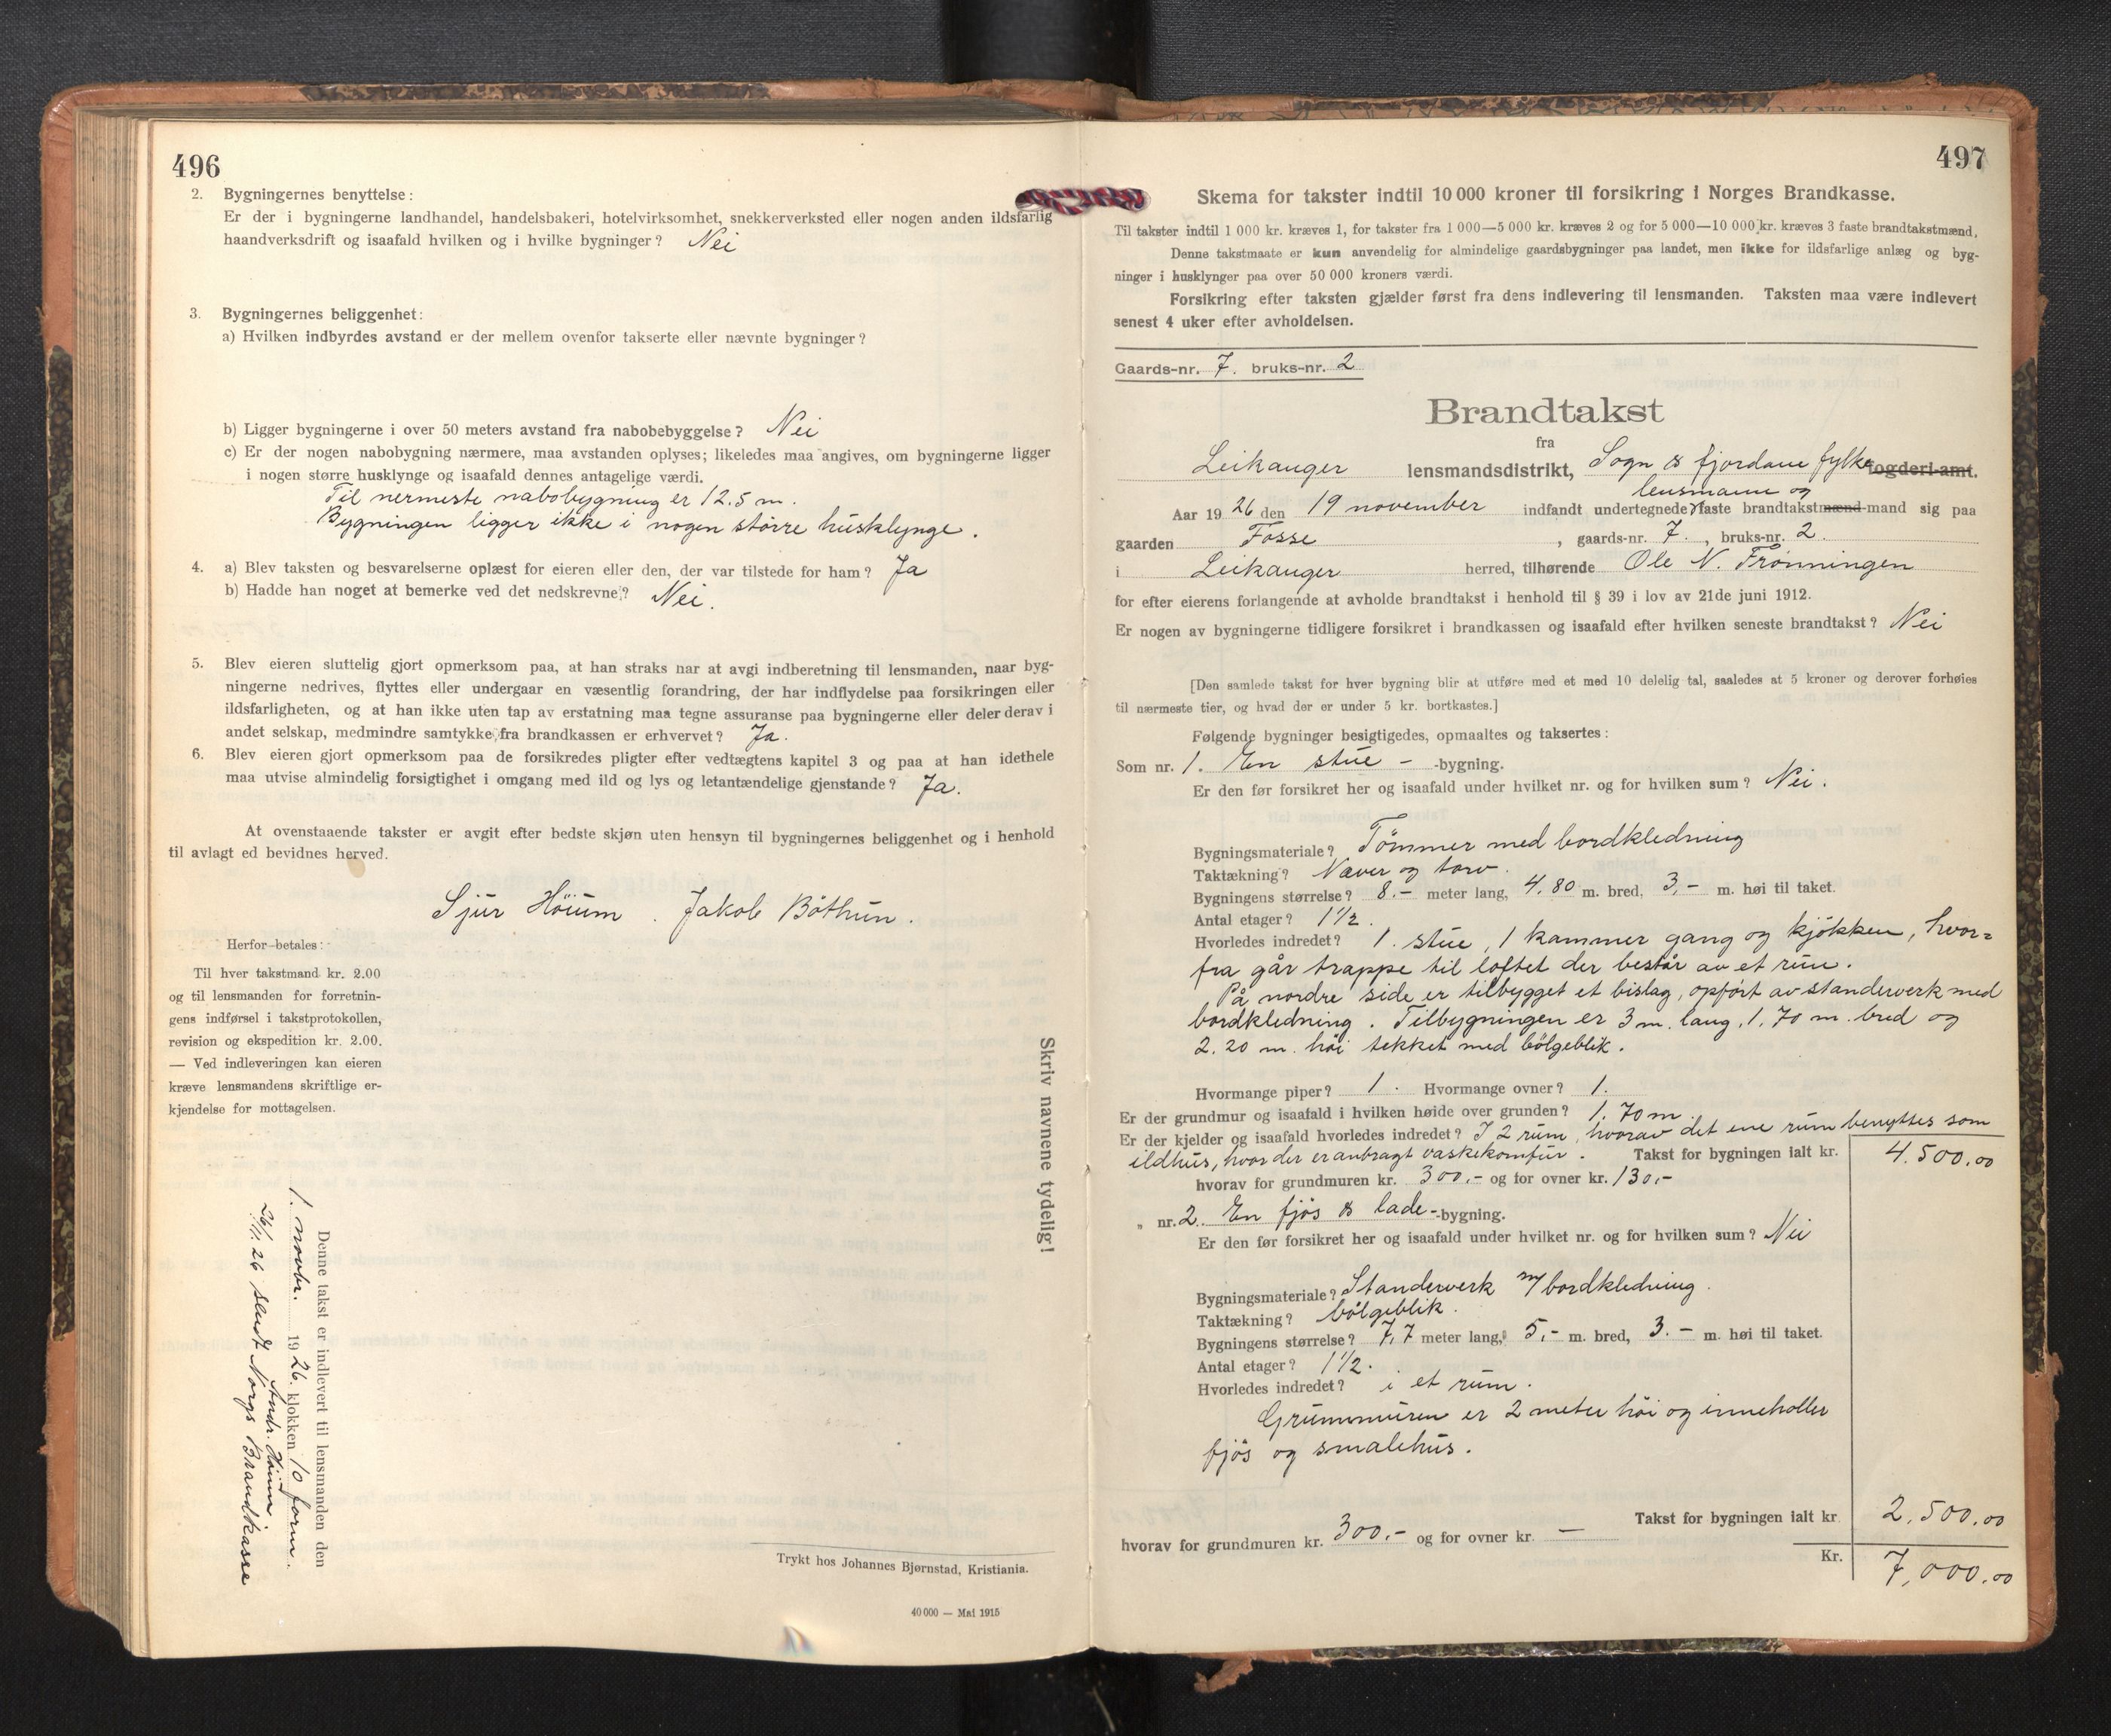 496
2. Bygningernes benyttelse:
Er der i bygningerne landhandel, handelsbakeri, hotelvirksomhet, snekkerverksted eller nogen anden ildsfarlig
haandverksdrift og isaafald hvilken og i hvilke bygninger? Nei
3. Bygningernes beliggenhet:
a) Hvilken indbyrdes avstand er der mellem ovenfor takserte eller nævnte bygninger?
b) Ligger bygningerne i over 50 meters avstand fra nabobebyggelse? Nei
c) Er der nogen nabobygning nærmere, maa avstanden oplyses; likeledes maa angives, om bygningerne ligger
i nogen større husklynge og isaafald dennes antagelige værdi.
Til nermeste nabobygning er 12.5 m.
Bygningen ligger ikke i nogen större husklynge.
4. a) Blev taksten og besvarelserne oplæst for eieren eller den, der var tilstede for ham? Ja
b) Hadde han noget at bemerke ved det nedskrevne? Nei.
5. Blev eieren sluttelig gjort opmerksom paa, at han straks har at avgi indberetning til lensmanden, naar byg-
ningerne nedrives, flyttes eller undergaar en væsentlig forandring, der har indflydelse paa forsikringen eller
ildsfarligheten, og at han ikke uten tap av erstatning maa tegne assuranse paa bygningerne eller deler derav i
andet selskap, medmindre samtykke fra brandkassen er erhvervet? Ja.
6. Blev eieren gjort opmerksom paa de forsikredes pligter efter vedtægtens kapitel 3 og paa at han idethele
maa utvise almindelig forsigtighet i omgang med ild og lys og letantændelige gjenstande? Ja.
At ovenstaaende takster er avgit efter bedste skjøn uten hensyn til bygningernes beliggenhet og i henhold
til avlagt ed bevidnes herved.
Sjur Höium . Jakob Böthun.
Herfor betales:
Til hver takstmand kr. 2.00
og til lensmanden for forretnin-
gens indførsel i takstprotokollen,
revision og ekspedition kr. 2.00.
— Ved indleveringen kan eieren
kræve lensmandens skriftlige er-
kjendelse for mottagelsen.
Skriv navnene tydelig!
Denne takst er indlevert til lensmanden den
1. novbr. 1926. klokken 10 form.
Andr. Höium.
26/11 26 sendt Norgs Brandkasse
Trykt hos Johannes Bjørnstad, Kristiania.
40 000 — Mai 1915
497
Skema for takster indtil 10 000 kroner til forsikring i Norges Brandkasse.
Til takster indtil 1 000 kr. kræves 1, for takster fra 1 000—5 000 kr. kræves 2 og for 5 000—10 000 kr. kræves 3 faste brandtakstmænd.
Denne takstmaate er kun anvendelig for almindelige gaardsbygninger paa landet, men ikke for ildsfarlige anlæg og byg-
ninger i husklynger paa over 50 000 kroners værdi.
Forsikring efter taksten gjælder først fra dens indlevering til lensmanden. Taksten maa være indlevert
senest 4 uker efter avholdelsen.
Gaards-nr. 7. bruks-nr. 2
Brandtakst
fra
Leikanger lensmandsdistrikt, Sogn & fjordane fylke fogderi amt.
lensmann og
Aar 1926 den 19 november indfandt undertegnede faste brandtakstmænd-mand sig paa
gaarden Fosse, gaards-nr. 7., bruks-nr. 2.
i Leikanger herred, tilhørende Ole N. Trönningen
for efter eierens forlangende at avholde brandtakst i henhold til § 39 i lov av 21de juni 1912.
Er nogen av bygningerne tidligere forsikret i brandkassen og isaafald efter hvilken seneste brandtakst? Nei
[Den samlede takst for hver bygning blir at utføre med et med 10 delelig tal, saaledes at 5 kroner og derover forhøies
til nærmeste tier, og hvad der er under 5 kr. bortkastes.]
Følgende bygninger besigtigedes, opmaaltes og taksertes:
Som nr. 1. En stue - -bygning.
Er den før forsikret her og isaafald under hvilket nr. og for hvilken sum? Nei.
Bygningsmateriale? Tömmer med bordkledning
Taktækning? Næver og torv.
Bygningens størrelse? 8.- meter lang, 4.80 m. bred, 3,- m. høi til taket.
Antal etager? 1½.
Hvorledes indredet? 1. stue, 1 kammer gang og kjökken, hvor=
fra går trappe til loftet der består av et rum.
På nordre side er tilbygget et bislag, opfört av standerverk med
bordkledning. Tilbygningen er 3 m. lang, 1.70 m. bred og
2.20 m. höi tekket med bölgeblik.
Hvormange piper? 1. Hvormange ovner? 1.
Er der grundmur og isaafald i hvilken høide over grunden? 1.70 m.
Er der kjelder og isaafald hvorledes indredet? I 2 rum, hvorav det ene rum benyttes som
ildhus, hvor der er anbragt vaskekomfur. Takst for bygningen ialt kr. 4.500.00
hvorav for grundmuren kr. 300.- og for ovner kr. 130,-
„ nr. 2. En fjös & lade- -bygning.
Er den før forsikret her og isaafald under hvilket nr. og for hvilken sum? Nei
Bygningsmateriale? Standerverk m/bordkledning.
Taktækning? bölgeblik.
Bygningens størrelse? 7,7 meter lang, 5,- m. bred, 3.- m. høi til taket.
Antal etager? 1½.
Hvorledes indredet? i et rum.
Grunnmuren er 2 meter höi og inneholler
fjös og smalehus.
Takst for bygningen ialt kr. 2.500.00
hvorav for grundmuren kr. 300.- og for ovner kr. —
Kr. 7,000.00